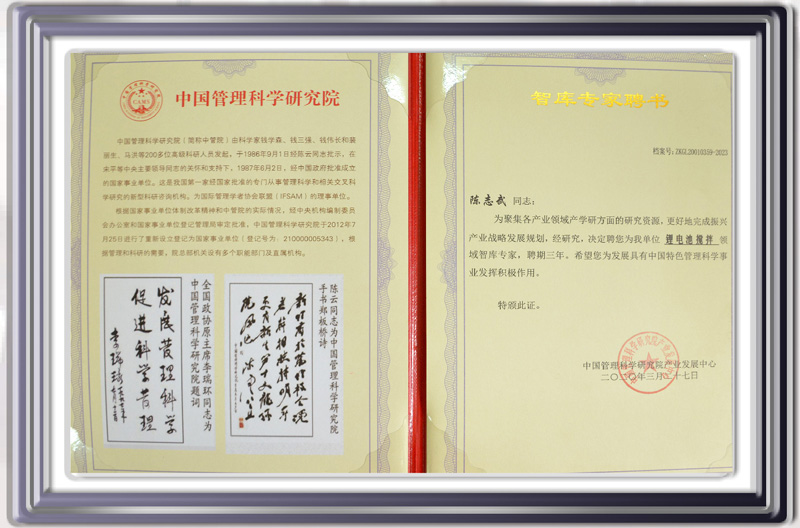 CAMS
中国管理科学研究院
中国管理科学研究院（简称中管院）由科学家钱学森、钱三强、钱伟长和裴
丽生、马洪等200多位高级科研人员发起，于1986年9月1日经陈云同志批示，在
宋平等中央主要领导同志的关怀和支持下，1987年6月2日，经中国政府批准成立
的国家事业单位。这是我国第一家经国家批准的专门从事管理科学和相关交叉科
学研究的新型科研咨询机构。为国际管理学者协会联盟（IFSAM）的理事单位。
根据国家事业单位体制改革精神和中管院的实际情况，经中央机构编制委员
会办公室和国家事业单位登记管理局审定批准，中国管理科学研究院于2012年7
月25日进行了重新设立登记为国家事业单位（登记号为：210000005343），根
据管理和科研的需要，院总部机关设有多个职能部门及直属机构。
全国政协原主席李瑞环同志为
中国管理科学研究院题词
发展管理科学
促进科学管理
李瑞环
陈云同志为中国管理科学研究院
手书郑板桥诗
智库专家聘书
档案号：ZKGL20010359-2023
陈志武 同志：
为聚集各产业领域产学研方面的研究资源，更好地完成振兴
产业战略发展规划，经研究，决定聘您为我单位 锂电池搅拌 领
域智库专家，聘期三年。希望您为发展具有中国特色管理科学事
业发挥积极作用。
特颁此证。
中国管理科学研究院产业发展中心
二〇二〇年三月二十七日